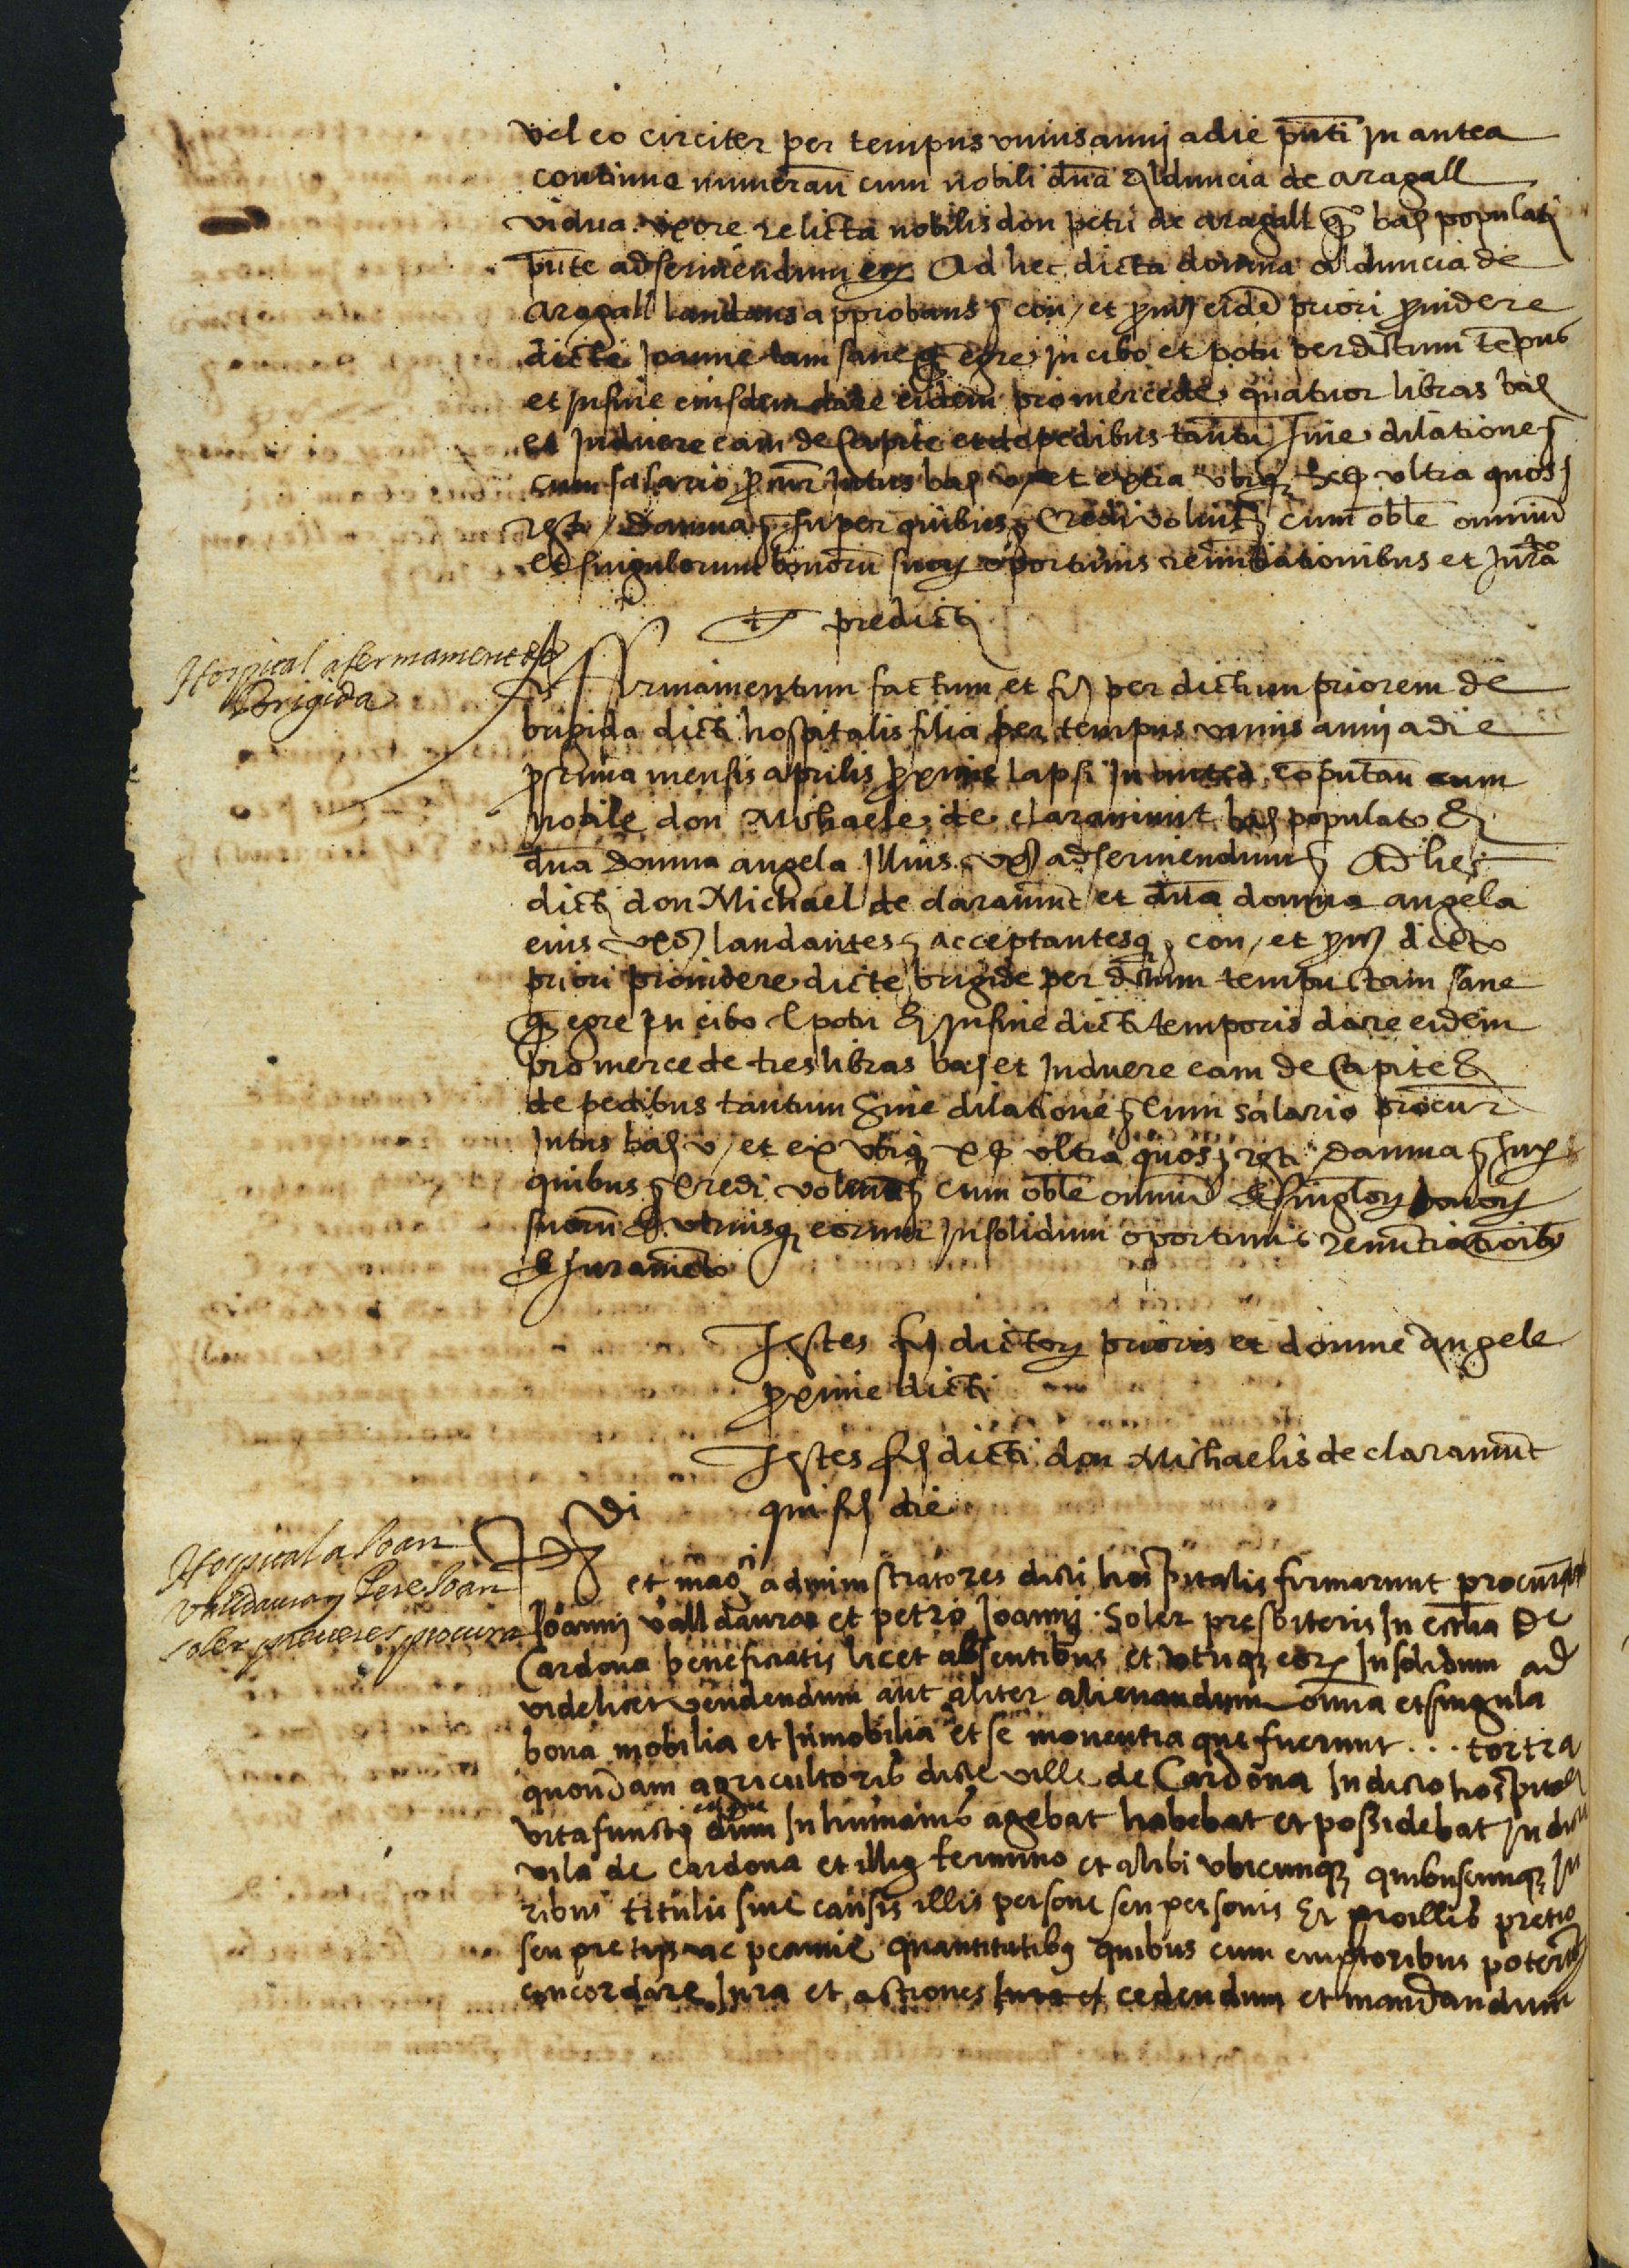 vel eo circiter per tempus unius anni a die pnti in antea
continue numeran cum nobili dna Alduncia de aragall
vidua uxore relicta nobilis don petri de aragall baf populati
pnte ad serviendum Ad hec dicta donna alduncia de
Aragall laudans approbans con / et eide priori providere
dicte Joanne tam sane q egre in cibo et potu per dictum tempus
et in fine eiusdem dare eidem pro mercede quatuor libras baf
et induere eam de capite et de pedibus tantu sine dilatione
cum salario intus baf v / et extra ubiq ultra quos
damna super quibus credi voluit cum oble omniu
et singulorum bonoru suor oportunis renuntiationibus et Jura
predicti
Hospital afermament de
Brigida
Afirmamentum factum et per dictum priorem de
brigida dicti hospitalis filia per tempus unius anni a die
prima mensis aprilis proxime lapsi in antea coputan cum
nobile don Michaele de claramunt baf populato
dna donna angela illius ad serviendum Ad hec
dicti don Michael de claramunt et dna donna angela
eius laudantes acceptantesq con / et dicto
priori providere dicte brigide per dictum tempus tam sane
q egre in cibo potu in fine dicti temporis dare eidem
pro mercede tres libras baf et induere eam de capite
de pedibus tantum sine dilatione cum salario procur
intus baf v / et ex ubiq ultra quos damna
quibus credi cum oble omniu singlor bonor
suoru utriusq eorum insolidum oportunis renuntiationib
Juramento
Testes dictor prioris et donne Angele
proxime dicti
Testes dicti don Michaelis de claramunt
qui die
Hospital a Joan
Valldaura y Pere Joan
soler preveres procura
Di
et mag administratores dicti hospitalis firmarunt procura
Joanni valldaura et petro Joanni Soler presbiteris in ecclia de
Cardona beneficiatis licet absentibus et utriq eor Insolidum ad
videlicet vendendum aut aliter alienandum omnia et singula
bona mobilia et Inmobilia et se moventia que fuerunt . . . tortra
quondam agricultoris dicte ville de Cardona In dicto hospitali
vita functi dum In humanis agebat habebat et possidebat In dicta
vila de cardona et illius termino et alibi ubicunq quibuscunq Ju
ribus titulis sive causis illis persone seu personis Et pro illis pretio
seu pretiis ac pecunie quantitatibus quibus cum emptoribus poterit
concordare Jura et actiones cedendum et mandandum